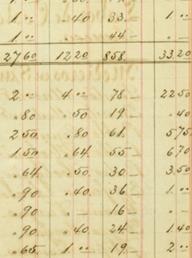 1 " .40 33 . 1 "
1 " " 44 . "
2760 1220 858. 3320
2 " 4 " 78 . 2250
.80 .50 19 . .40
250 .80 61. 575
150 .64 55 . 670
.64 .50 30 . 350
.90 .40 36 1 "
.90 . " 16 . "
.90 .40 24 . 140
.65 1 " 19 . 2 "